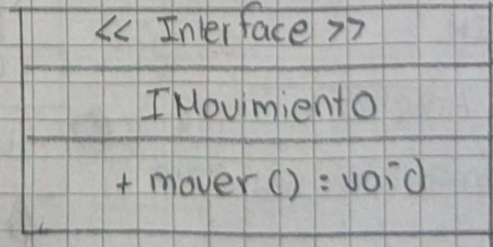 << Interface >>
IMovimiento
+ mover() : void